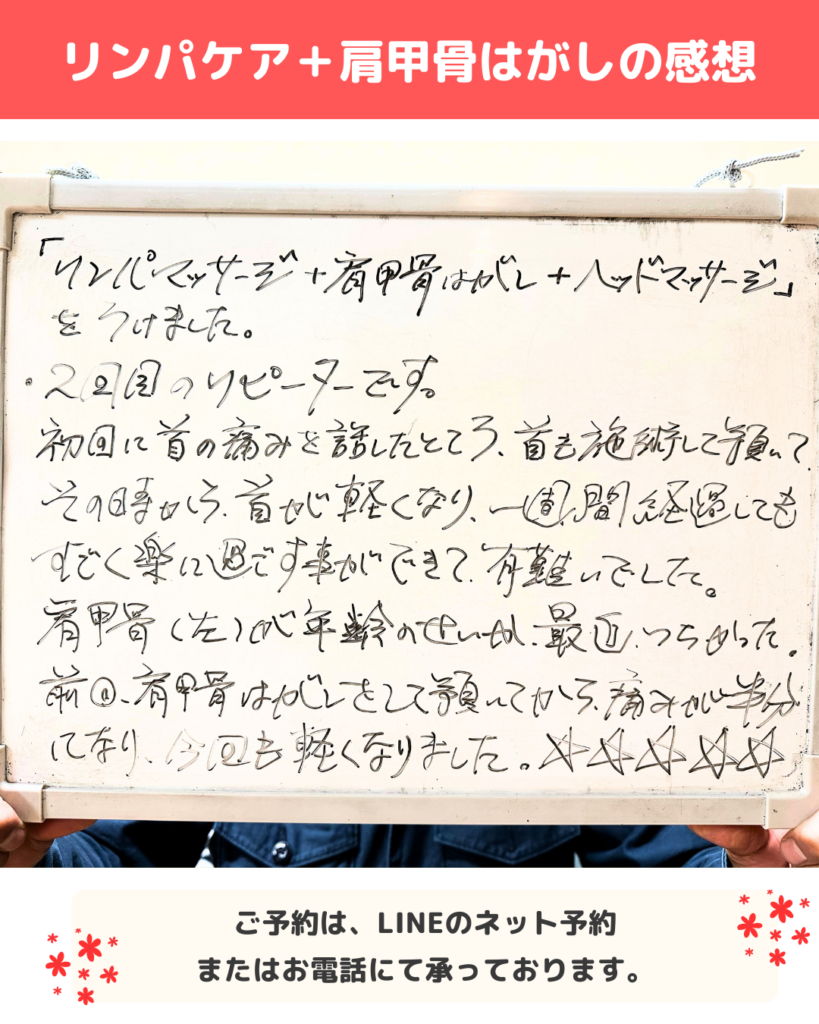 リンパケア＋肩甲骨はがしの感想
「リンパマッサージ+肩甲骨はがし+ヘッドマッサージ」
をうけました。
・2回目のリピーターです。
初回に首の痛みを話したところ、首も施術して頂いて、
その時から、首が軽くなり、一週間経過しても
すごく楽に過ごす事ができて、有難いでした。
肩甲骨(左)が年齢のせいか、最近、つらかった。
前回、肩甲骨はがしをして頂いてから、痛みが半分
になり、今回も軽くなりました。☆☆☆☆☆
ご予約は、LINEのネット予約
またはお電話にて承っております。